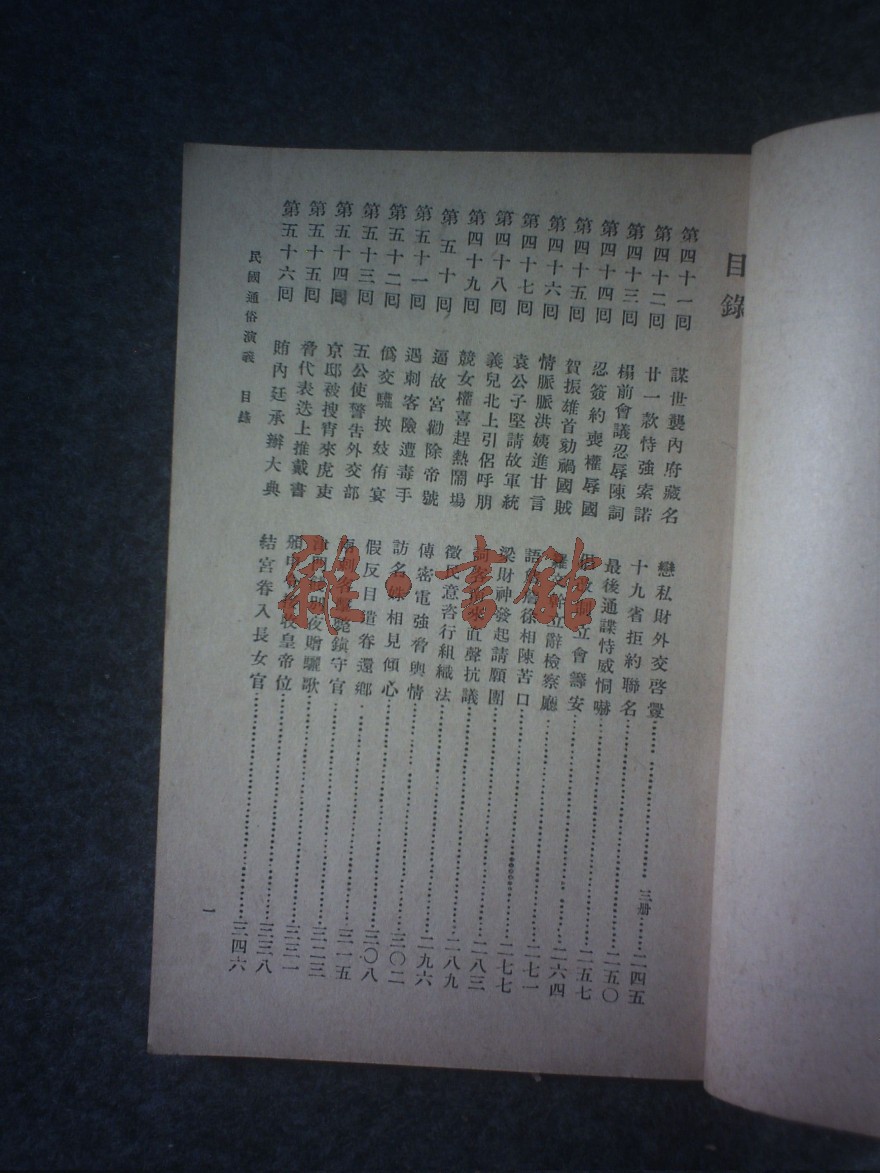 目錄
第四十一回 謀世襲內府藏名 戀私財外交啓釁 三册 二四五
第四十二回 廿一款恃強索諾 十九省拒約聯名 二五〇
第四十三回 榻前會議忍辱陳詞 最後通諜恃威恫嚇 二五七
第四十四回 忍簽約喪權辱國 改 立會籌安 二六四
第四十五回 賀振雄首劾禍國賊 立辭檢察廳 二七一
第四十六回 情脈脈洪姨進甘言 語 徐相陳苦口 二七七
第四十七回 袁公子堅請故軍統 梁財神發起請願團 二八三
第四十八回 義兒北上引侶呼朋 來直聲抗議 二八九
第四十九回 競女權喜趕熱鬧場 徵民意咨行組織法 二九六
第五十回 逼故宮勸除帝號 傳密電強脅輿情 三〇二
第五十一回 遇刺客險遭毒手 訪名姝相見傾心 三〇八
第五十二回 僞交驩挾妓侑宴 假反目遣眷還鄉 三一五
第五十三回 五公使警告外交部 斃鎮守官 三二三
第五十四回 京邸被搜宵來虎吏 夜贈驪歌 三三一
第五十五回 脅代表迭上推戴書 頒申 收皇帝位 三三八
第五十六回 賄內廷承辦大典 結宮眷入長女官 三四六
民國通俗演義 目錄 一
雜·書館